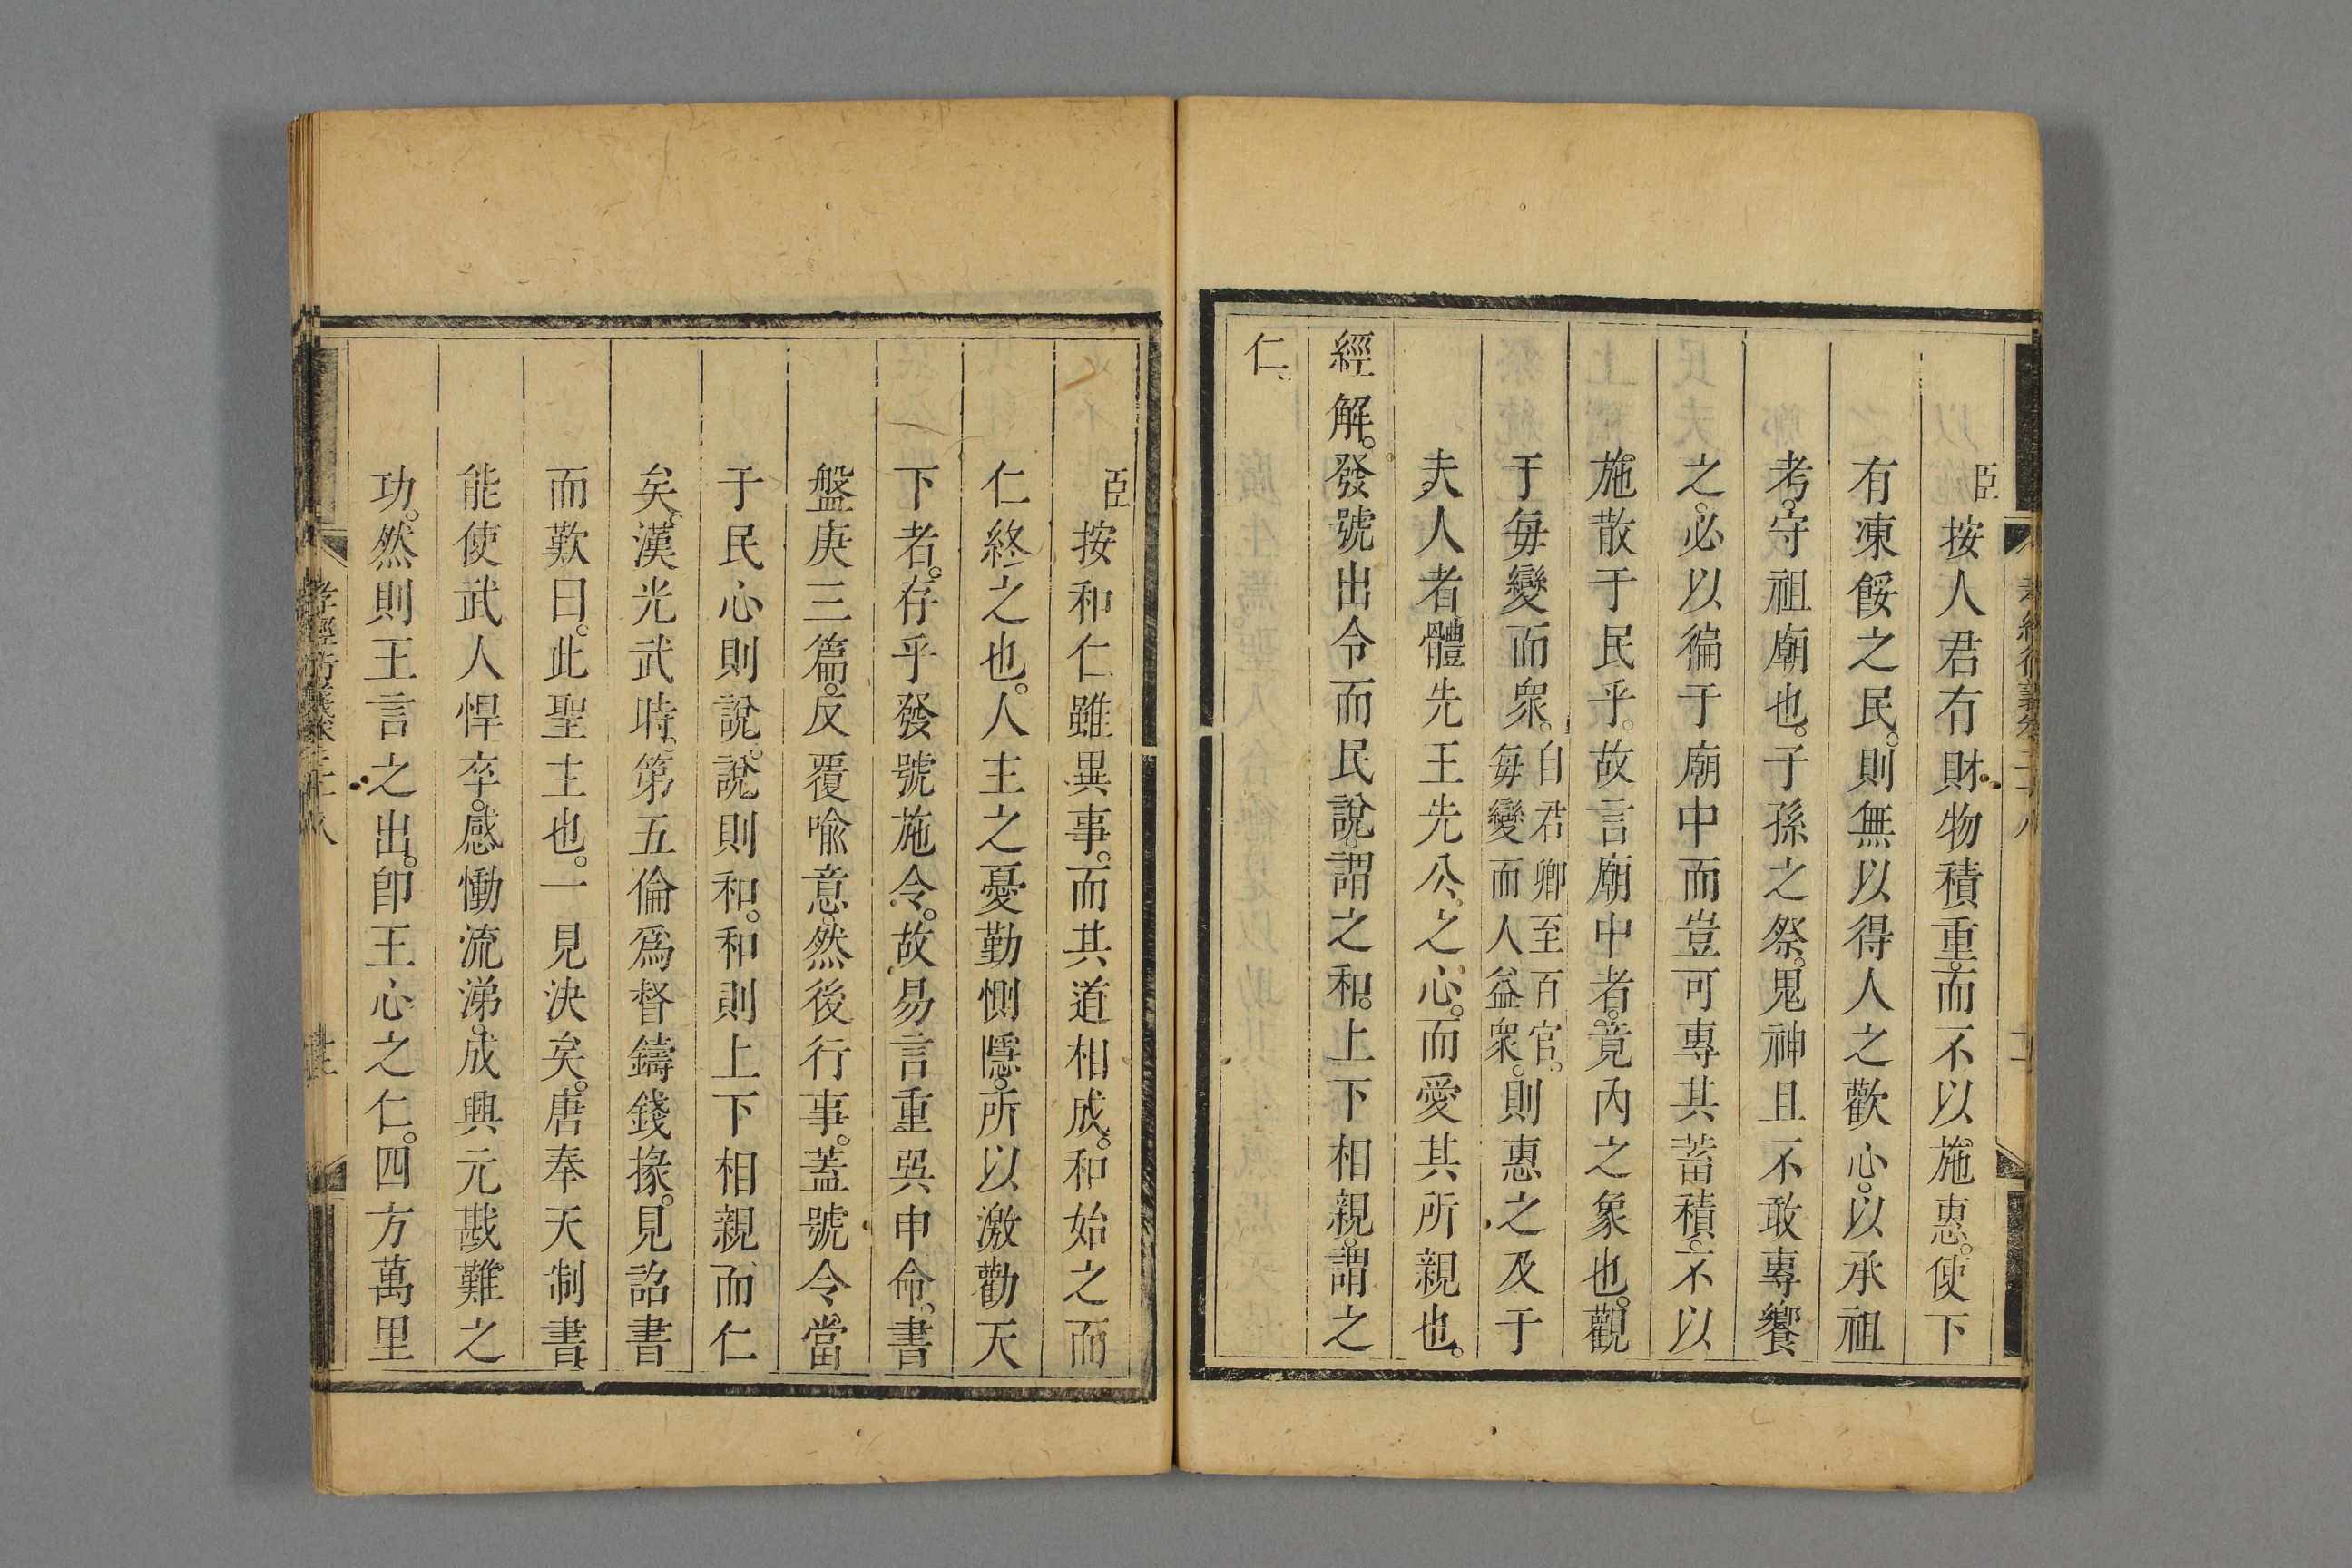 臣按人君有財物積重。而不以施惠。使下
有凍餒之民。則無以得人之歡心。以承祖
考。守祖廟也。子孫之祭。鬼神且不敢專饗
之。必以徧于廟中而豈可專其蓄積。不以
施散于民乎。故言廟中者。竟内之象也。觀
于每變而衆。自君卿至百官。每變而人益衆。則惠之及于
夫人者體先王先公之心。而愛其所親也。
經解。發號出令而民說。謂之和。上下相親。謂之
仁。
臣按和仁雖異事。而其道相成。和始之而
仁終之也。人主之憂勤惻隱。所以激勸天
下者。存乎發號施令。故易言重巽申命。書
盤庚三篇。反覆喻意。然後行事。蓋號令當
于民心則說。說則和。和則上下相親而仁
矣。漢光武時。第五倫爲督鑄錢掾。見詔書
而歎曰。此聖主也。一見決矣。唐奉天制書
能使武人悍卒。感慟流涕。成興元戡難之
功。然則王言之出。卽王心之仁。四方萬里
孝經衍義卷二十八